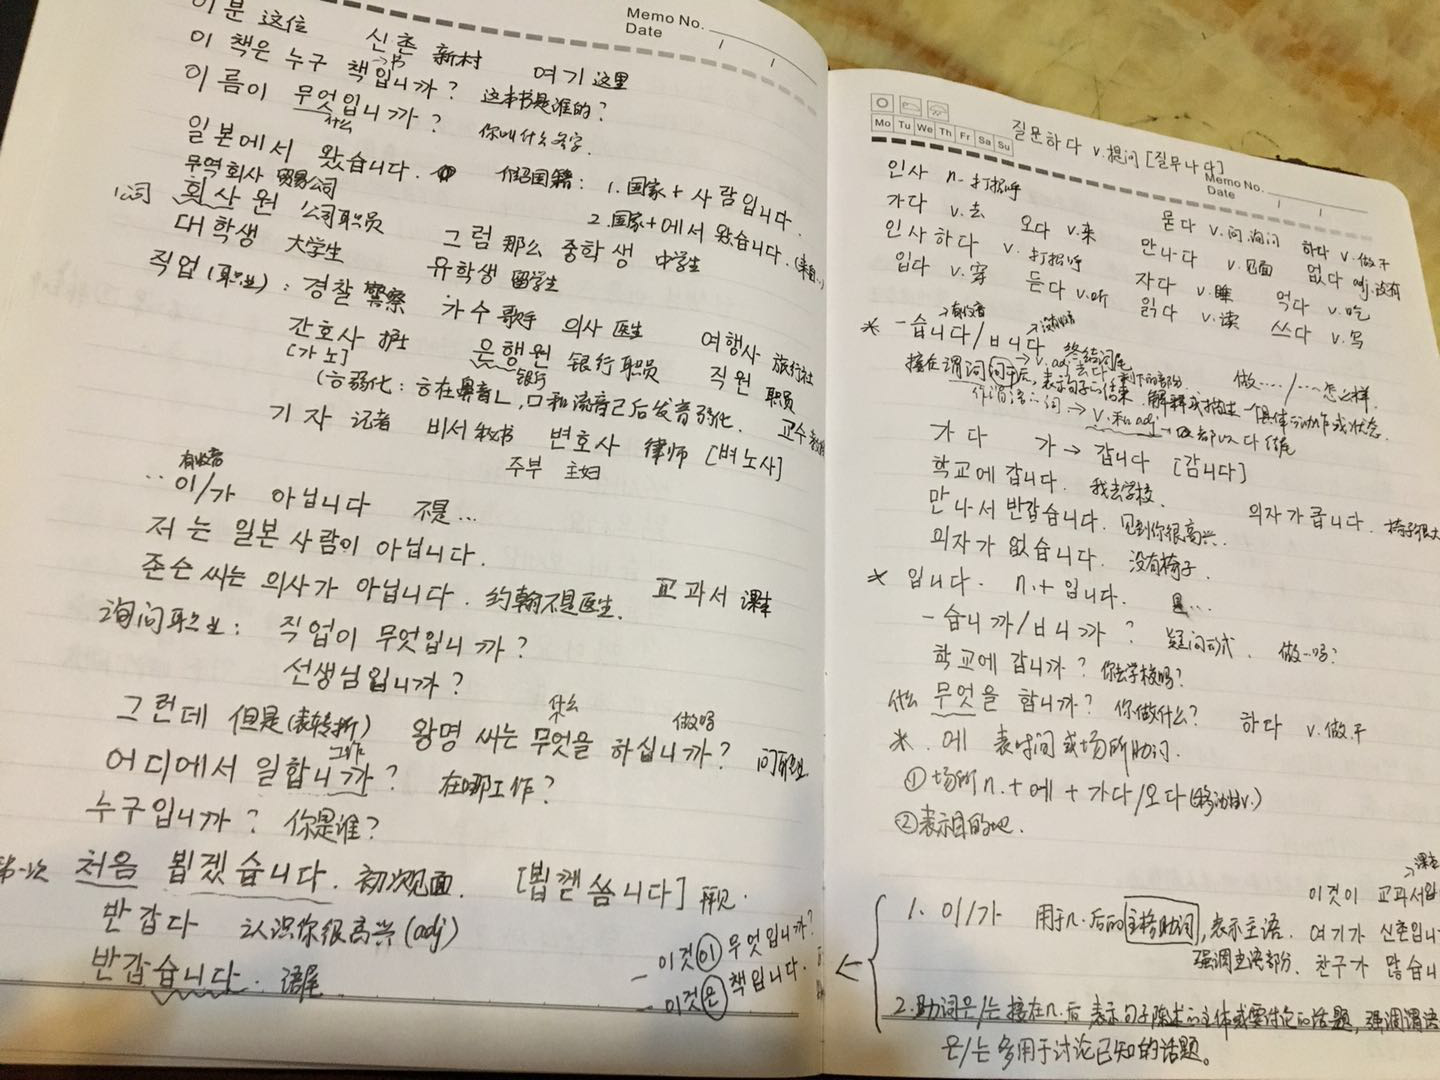 Memo No.
Date
이분 这位 신촌 新村 여기 这里
이 책은 누구 책입니까? 这本书是谁的?
→书
이름이 무엇입니까? 你叫什么名字.
什么
일본에서 왔습니다. 介绍国籍: 1. 国家+사람입니다.
무역회사 贸易公司 2. 国家+에서 왔습니다.(来自..)
公司 회사원 公司职员
대학생 大学生 그럼 那么 중학생 中学生
유학생 留学生
직업(职业): 경찰 警察 가수 歌手 의사 医生 여행사 旅行社
간호사 护士 은행원 银行职员 직원 职员
[가노] 银行
(ㅎ弱化: ㅎ在鼻音ㄴ,ㅁ和流音ㄹ后发音弱化. 교수
기자 记者 비서 秘书 변호사 律师 [벼노사]
주부 主妇
有收音
..이/가 아닙니다 不是...
저는 일본 사람이 아닙니다.
존슨 씨는 의사가 아닙니다. 约翰不是医生. 교과서 课本
询问职业: 직업이 무엇입니까?
선생님입니까?
什么 做吗
그런데 但是(表转折) 왕명 씨는 무엇을 하십니까? 问职业
工作
어디에서 일합니까? 在哪工作?
누구입니까? 你是谁?
第一次 처음 뵙겠습니다. 初次见面. [뵙껟씀니다]
반갑다 认识你很高兴(adj)
반갑습니다. 语尾
- 이것이 무엇입니까?
- 이것은 책입니다.
Mo Tu We Th Fr Sa Su
질문하다 v.提问 [질무나다]
Memo No.
Date
인사 n.打招呼
가다 v.去 오다 v.来 묻다 v.问.询问 하다 v.做干
인사하다 v.打招呼 만나다 v.见面 없다 adj.没有
입다 v.穿 듣다 v.听 자다 v.睡 먹다 v.吃
읽다 v.读 쓰다 v.写
→有收音 →没收音
* -습니다/ㅂ니다 终结词尾
接在谓词词干后,表示句子的结束.解释或描述一个具体行动作或状态. 做..../...怎么样.
→ v. adj去다剩下的部分
作谓语的词→v.和adj→以다结尾
가다 가→갑니다 [감니다]
학교에 갑니다. 我去学校.
만나서 반갑습니다. 见到你很高兴. 의자가 큽니다. 椅子很大
의자가 없습니다. 没有椅子.
* 입니다. n.+입니다. 是...
-습니까/ㅂ니까? 疑问形式. 做..吗?
학교에 갑니까? 你去学校吗?
什么 무엇을 합니까? 你做什么? 하다 v.做干
*.에 表时间或场所助词.
①场所n.+에+가다/오다(移动性v.)
②表示目的地.
→课本
이것이 교과서입
1. 이/가 用于n.后的主格助词,表示主语. 여기가 신촌입니
强调主语部分. 친구가 많습니
2.助词은/는接在n.后 表示句子陈述的主体或要讨论的话题,强调谓语
은/는多用于讨论已知的话题。